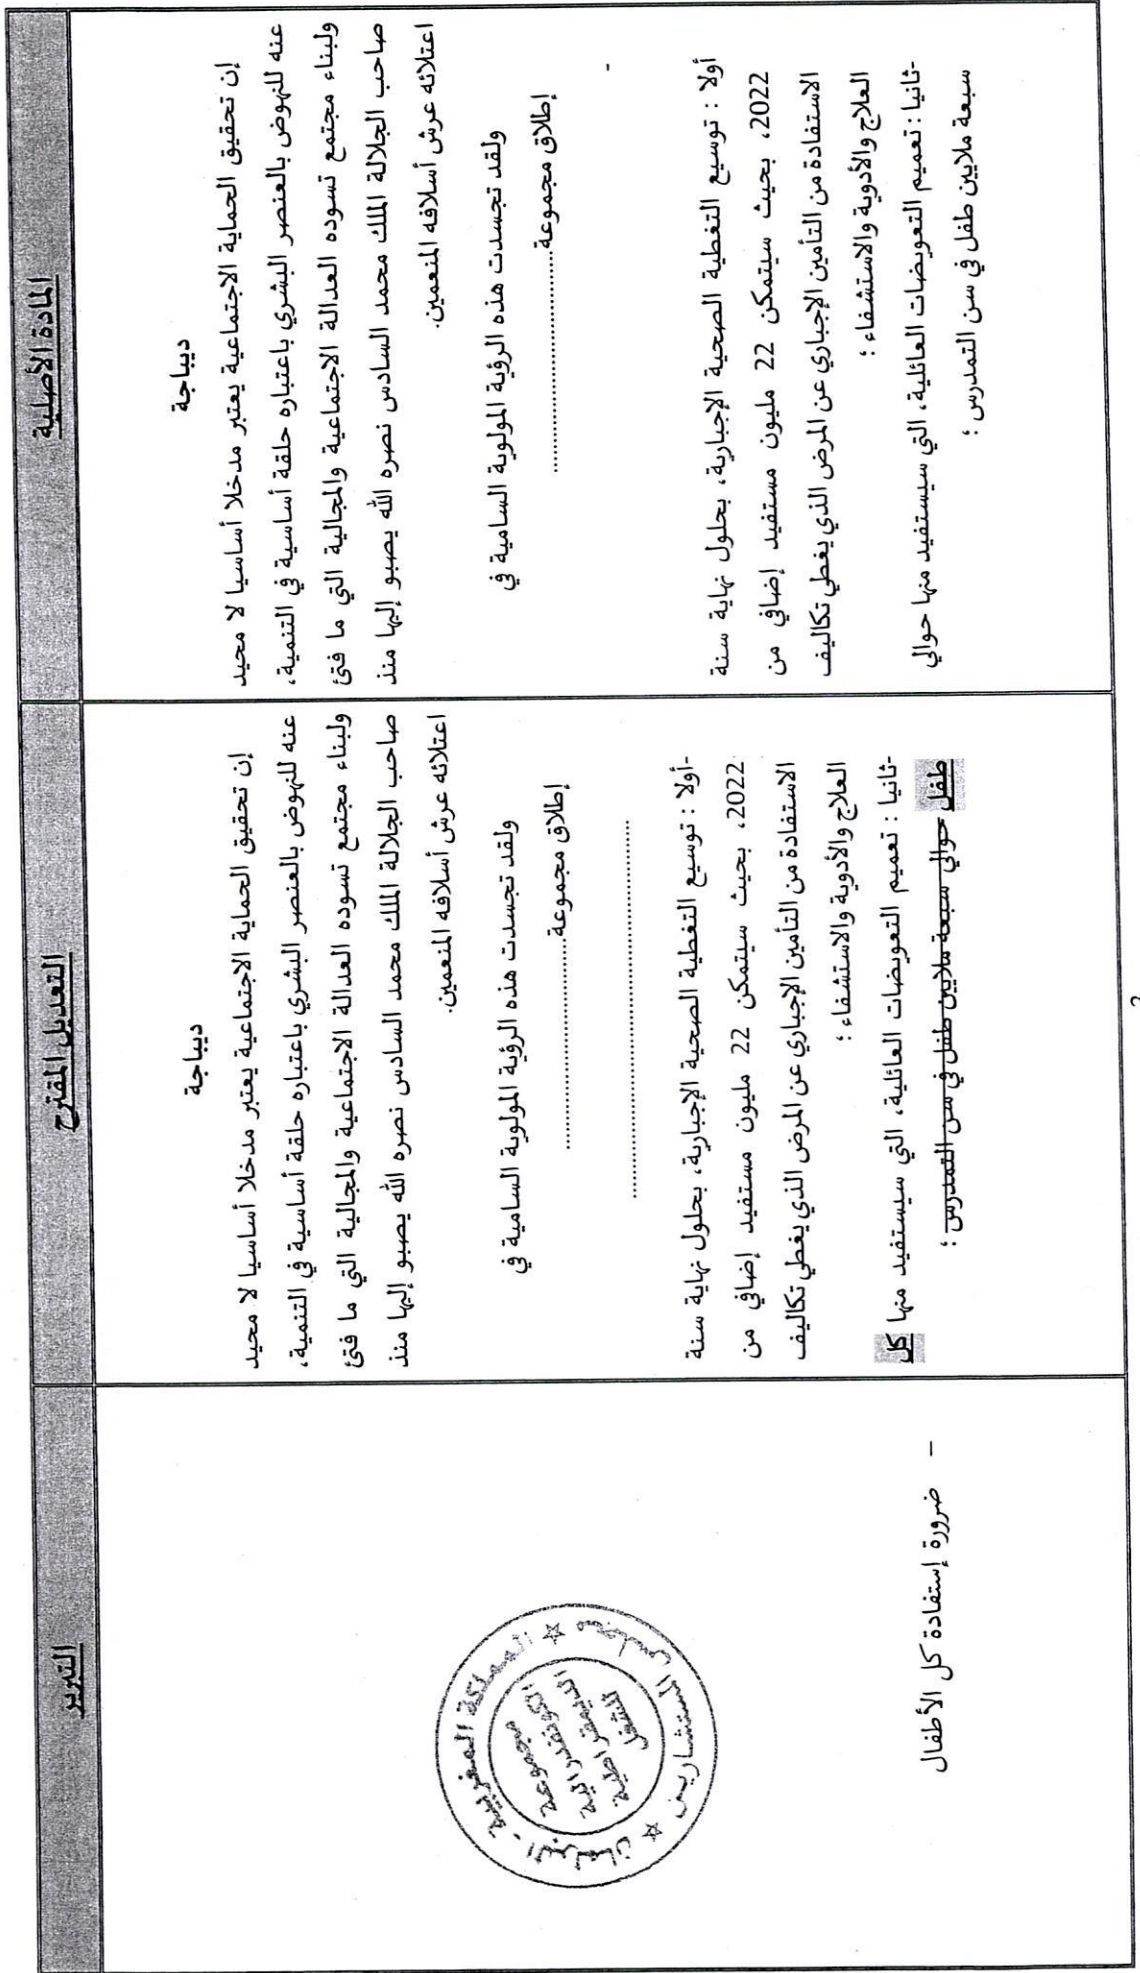 المادة الأصلية
ديباجة
إن تحقيق الحماية الاجتماعية يعتبر مدخلا أساسيا لا محيد
عنه للنهوض بالعنصر البشري باعتباره حلقة أساسية في التنمية،
ولبناء مجتمع تسوده العدالة الاجتماعية والمجالية التي ما فتئ
صاحب الجلالة الملك محمد السادس نصره الله يصبو إليها منذ
اعتلائه عرش أسلافه المنعمين.
ولقد تجسدت هذه الرؤية المولوية السامية في
إطلاق مجموعة......................................................
-
أولا : توسيع التغطية الصحية الإجبارية، بحلول نهاية سنة
2022، بحيث سيتمكن 22 مليون مستفيد إضافي من
الاستفادة من التأمين الإجباري عن المرض الذي يغطي تكاليف
العلاج والأدوية والاستشفاء ؛
-ثانيا : تعميم التعويضات العائلية، التي سيستفيد منها حوالي
سبعة ملايين طفل في سن التمدرس ؛
التعديل المقترح
ديباجة
إن تحقيق الحماية الاجتماعية يعتبر مدخلا أساسيا لا محيد
عنه للنهوض بالعنصر البشري باعتباره حلقة أساسية في التنمية،
ولبناء مجتمع تسوده العدالة الاجتماعية والمجالية التي ما فتئ
صاحب الجلالة الملك محمد السادس نصره الله يصبو إليها منذ
اعتلائه عرش أسلافه المنعمين.
ولقد تجسدت هذه الرؤية المولوية السامية في
إطلاق مجموعة......................................................
......................................................
-أولا : توسيع التغطية الصحية الإجبارية، بحلول نهاية سنة
2022، بحيث سيتمكن 22 مليون مستفيد إضافي من
الاستفادة من التأمين الإجباري عن المرض الذي يغطي تكاليف
العلاج والأدوية والاستشفاء ؛
-ثانيا : تعميم التعويضات العائلية، التي سيستفيد منها كل
طفل حوالي سبعة ملايين طفل في سن التمدرس ؛
التبرير
المملكة المغربية - البرلمان
مجلس المستشارين
مجموعة
الكونفدرالية
الديمقراطية
للشغل
- ضرورة إستفادة كل الأطفال
2